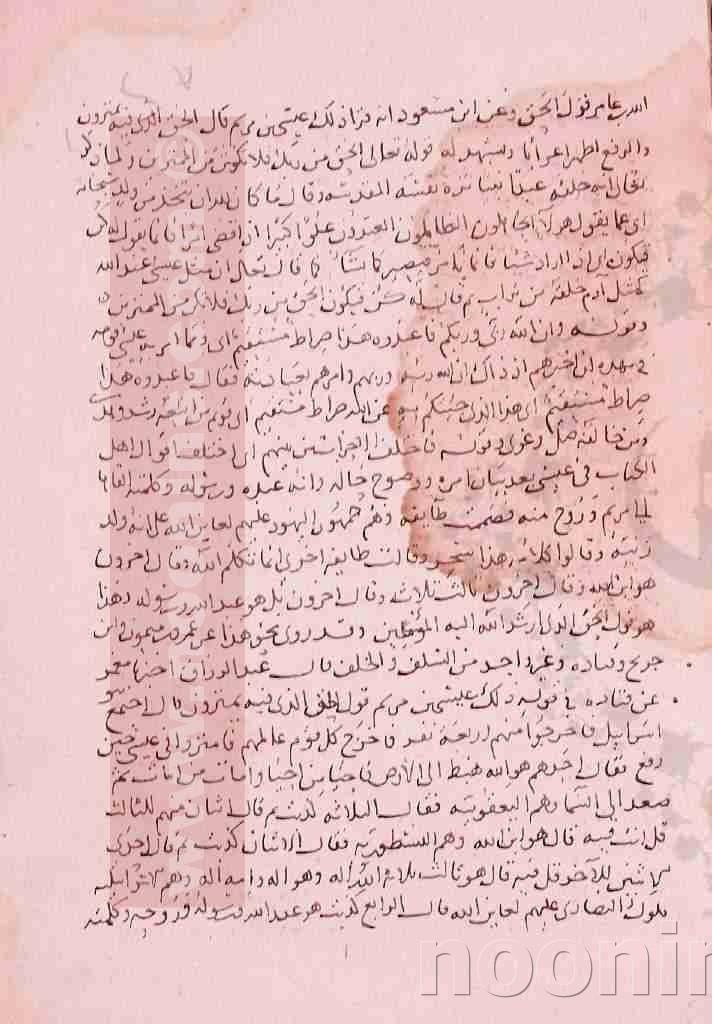 الله بن عامر قول الحق وعن ابن مسعود انه قرأ ذلك عيسى بن مريم قال الحق الذي فيه يمترون
والرفع اظهر اعرابا ويشهد له قوله تعالى الحق من ربك فلا تكونن من الممترين ولما ذكر
تعالى انه خلقه عبدا نبيا نزه نفسه المقدسه وقال ما كان لله ان يتخذ من ولد سبحانه
اي عما يقول هولا الجاهلون الظالمون المعتدون علوا كبيرا اذا قضى امرا فانما يقول له كن
فيكون اي اذا اراد شيئا فانما يامر به فيصير كما يشا كما قال تعالى ان مثل عيسى عند الله
كمثل ادم خلقه من تراب ثم قال له كن فيكون الحق من ربك فلا تكن من الممترين
وقوله وان الله ربي وربكم فاعبدوه هذا صراط مستقيم اي ومما امر به عيسى قومه
في مهده ان اخبرهم اذ ذاك ان الله ربه وربهم وامرهم بعبادته فقال فاعبدوه هذا
صراط مستقيم اي هذا الذي جيتكم به عن الله صراط مستقيم اي قويم من اتبعه رشد وهدى
ومن خالفه ضل وغوى وقوله فاختلف الاحزاب من بينهم اي اختلف اقوال اهل
الكتاب في عيسى بعد بيان امره ووضوح حاله وانه عبده ورسوله وكلمته القاها
الى مريم وروح منه فصممت طايفة وهم جمهور اليهود عليهم لعاين الله على انه ولد
زنية وقالوا كلامه هذا سحر وقالت طايفه اخرى انما تكلم الله وقال اخرون
هو ابن الله وقال اخرون ثالث ثلاثه وقال اخرون بل هو عبد الله ورسوله وهذا
هو قول الحق الذي ارشد الله اليه المؤمنين وقد روي نحو هذا عن عمرو بن ميمون وابن
جريج وقتاده وغير واحد من السلف والخلف قال عبد الرزاق اخبرنا معمر
عن قتاده في قوله ذلك عيسى بن مريم قول الحق الذي فيه يمترون قال اجتمع بنو
اسراييل فاخرجوا منهم اربعة نفر فاخرج كل قوم عالمهم فامتروا في عيسى حين
رفع فقال احدهم هو الله هبط الى الارض فاحيا من احيا وامات من امات ثم
صعد الى السما وهم اليعقوبيه فقال الثلاثه كذبت ثم قال اثنان منهم للثالث
قل انت فيه قال هو ابن الله وهم النسطوريه فقال الاثنان كذبت ثم قال احد
الاثنين للآخر قل فيه قال هو ثالث ثلاثه الله اله وهو اله وامه اله وهم الاسراييليه
ملوك النصارى عليهم لعاين الله قال الرابع كذبت هو عبد الله ورسوله وروحه وكلمته
noonin